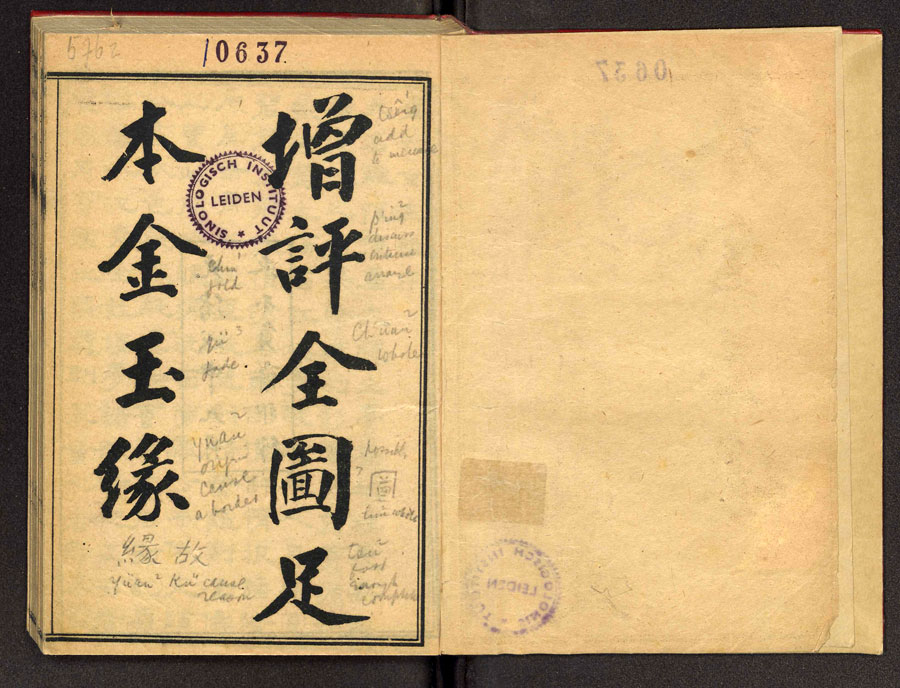 5762
10637
增評全圖足
本金玉緣
SINOLOGISCH INSTITUUT
LEIDEN
add
chin¹
gold
yü³
jade
p'ing²
discuss
criticise
arrange
Ch'üan²
whole
yuan²
origin
cause
a border
圖
緣故
yüan² Ku⁴ cause
reason
tsu²
foot
enough
complete
10637
SINOLOGISCH INSTITUUT
LEIDEN